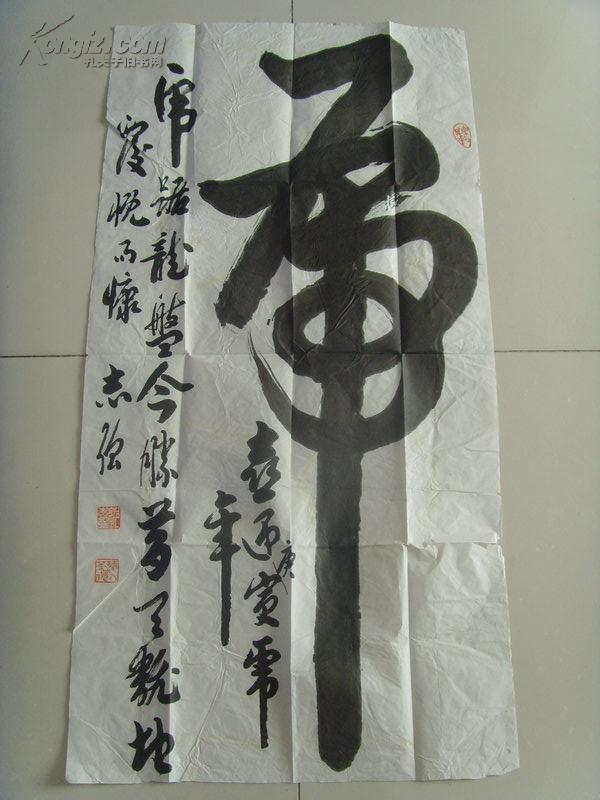 虎
喜迎庚寅虎
年
虎踞龍盤今勝昔天翻地
覆慨而慷
志强
Kongfz.com
孔夫子旧书网